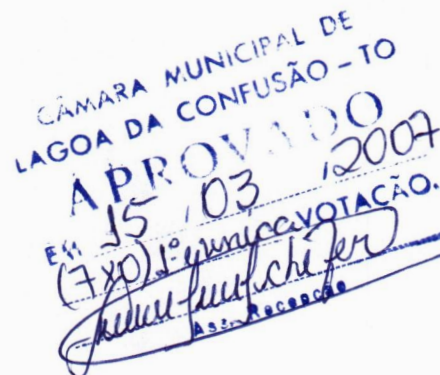 CÂMARA MUNICIPAL DE
LAGOA DA CONFUSÃO - TO
APROVADO
EM 15 / 03 / 2007
(7x0) 1º e unica VOTAÇÃO.
Ass. Recepção